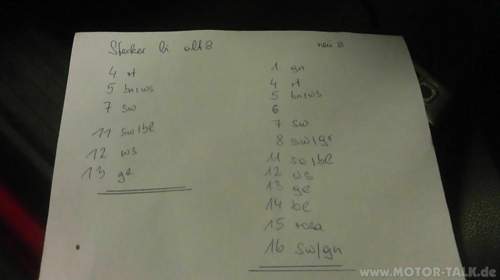 Stecker li alt 8
4 rt
5 bn/ws
7 sw
11 sw/bl
12 ws
13 ge
neu 8
1 gn
4 rt
5 bn/ws
6
7 sw
8 sw/gr
11 sw/bl
12 ws
13 ge
14 bl
15 rosa
16 sw/gn
www.MOTOR-TALK.de